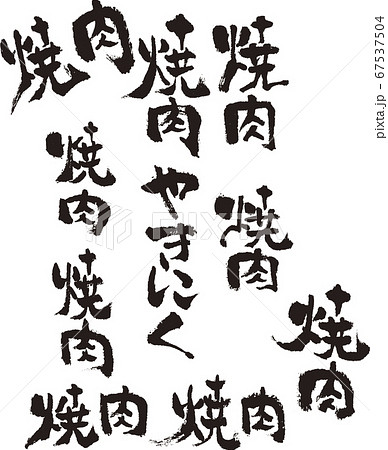 焼肉
焼肉
焼肉
焼肉
やきにく
焼肉
焼肉
焼肉
焼肉
焼肉
PIXTA
pixta.jp - 67537504